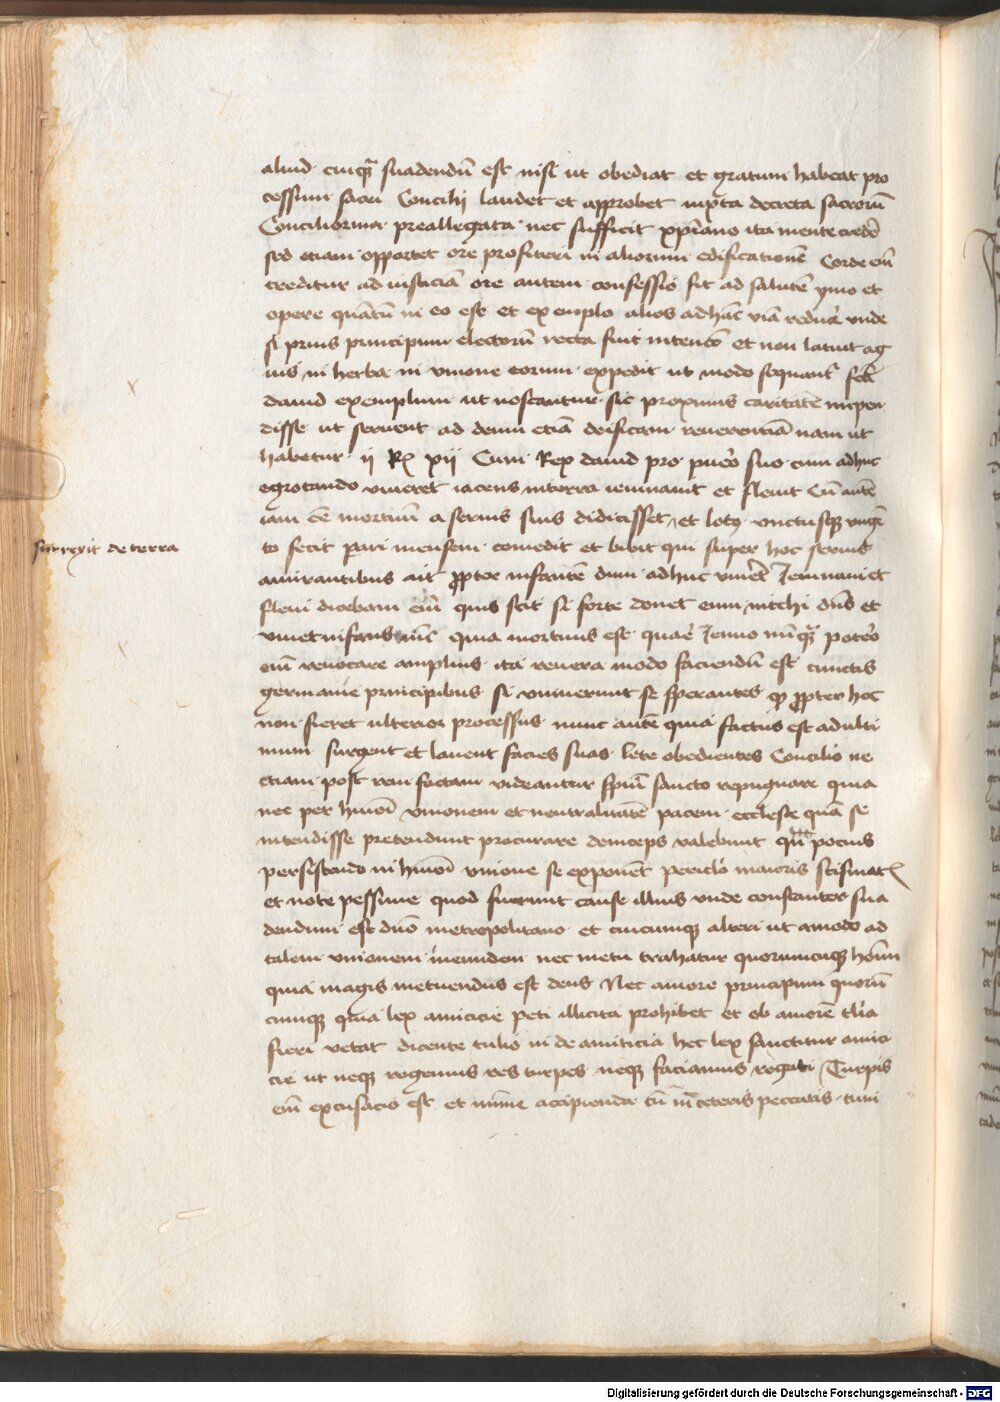 aliud cuiq̄ suadendū est nisi ut obediat et gratum habeat pro
cessum sacri Concilij laudet et approbet iuxta decreta sacrorū
Conciliorum preallegata nec sufficit xp̄iano ita mente credē
sed etiam opportet ore profiteri in aliorum edificationē Corde em̄
creditur ad iusticiā ore autem confessio fit ad salutē ymo et
opere quātū in eo est et exemplo alios ad hāc viā reducē unde
si prius principum electorū recta fuit intencō et non latuit ag
uis in herba in unione eorum expedit ut modo sequantr̄
dauid exemplum ut noscantur sic proximis caritatē inpen
disse ut seruent ad deum etiā deificam reuerentiā nam ut
habetur ii Rx xii Cum Rex dauid pro puero suo cum adhuc
egrotando viueret iacens in terra ieiunauit et fleuit Cū autē
iam eē mortuū a seruis suis didicisset et lotq unctusq ungē
surrexit de terra
to fecit pari mensem comedit et bibit qui super hoc seruis
amirantibus ait propter infantē dum adhuc viuerē Ieiunaui et
fleui dicebam em̄ quis scit si forte donet eum michi dn̄s et
viuet infans nūc quia mortuus est quare Ieiuno nūq̄ potero
eum reuocare amplius ita reuera modo faciendū est cunctis
germanie principibus si uniuerunt se sperantes qp propter hoc
non fieret ulterior processus nunc autē quia factus est ad ulti
mum surgent et lauent facies suas lete obedientes Concilio ne
etiam post rem factam videantur spūi sancto repugnare quia
nec per hmōi unionem et neutralitatē pacem ecclesie quā se
intendisse pretendunt procurare deinceps valebunt qn̄ pocius
persistendo in hmōi unione se exponēt periclo maioris scismatꝭ
et note pessime quod fuerunt cause illius unde constanter sua
dendum est dn̄o metropolitano et cuicumq alteri ut amodo ad
talem unionem nec metu trahatur quorumcumq homī
quia magis metuendus est deus Nec amore principum quorū
cumq quia lex amicicie peti illicita prohibet et ob amorē tlia
fieri vetat dicente tulio in de amiticia hec lex sanctitur amici
cie ut neq rogemus res turpes neq faciamus rogati Turpis
em̄ excusacio est et mīme accipienda cū in ceteris peccatis tum